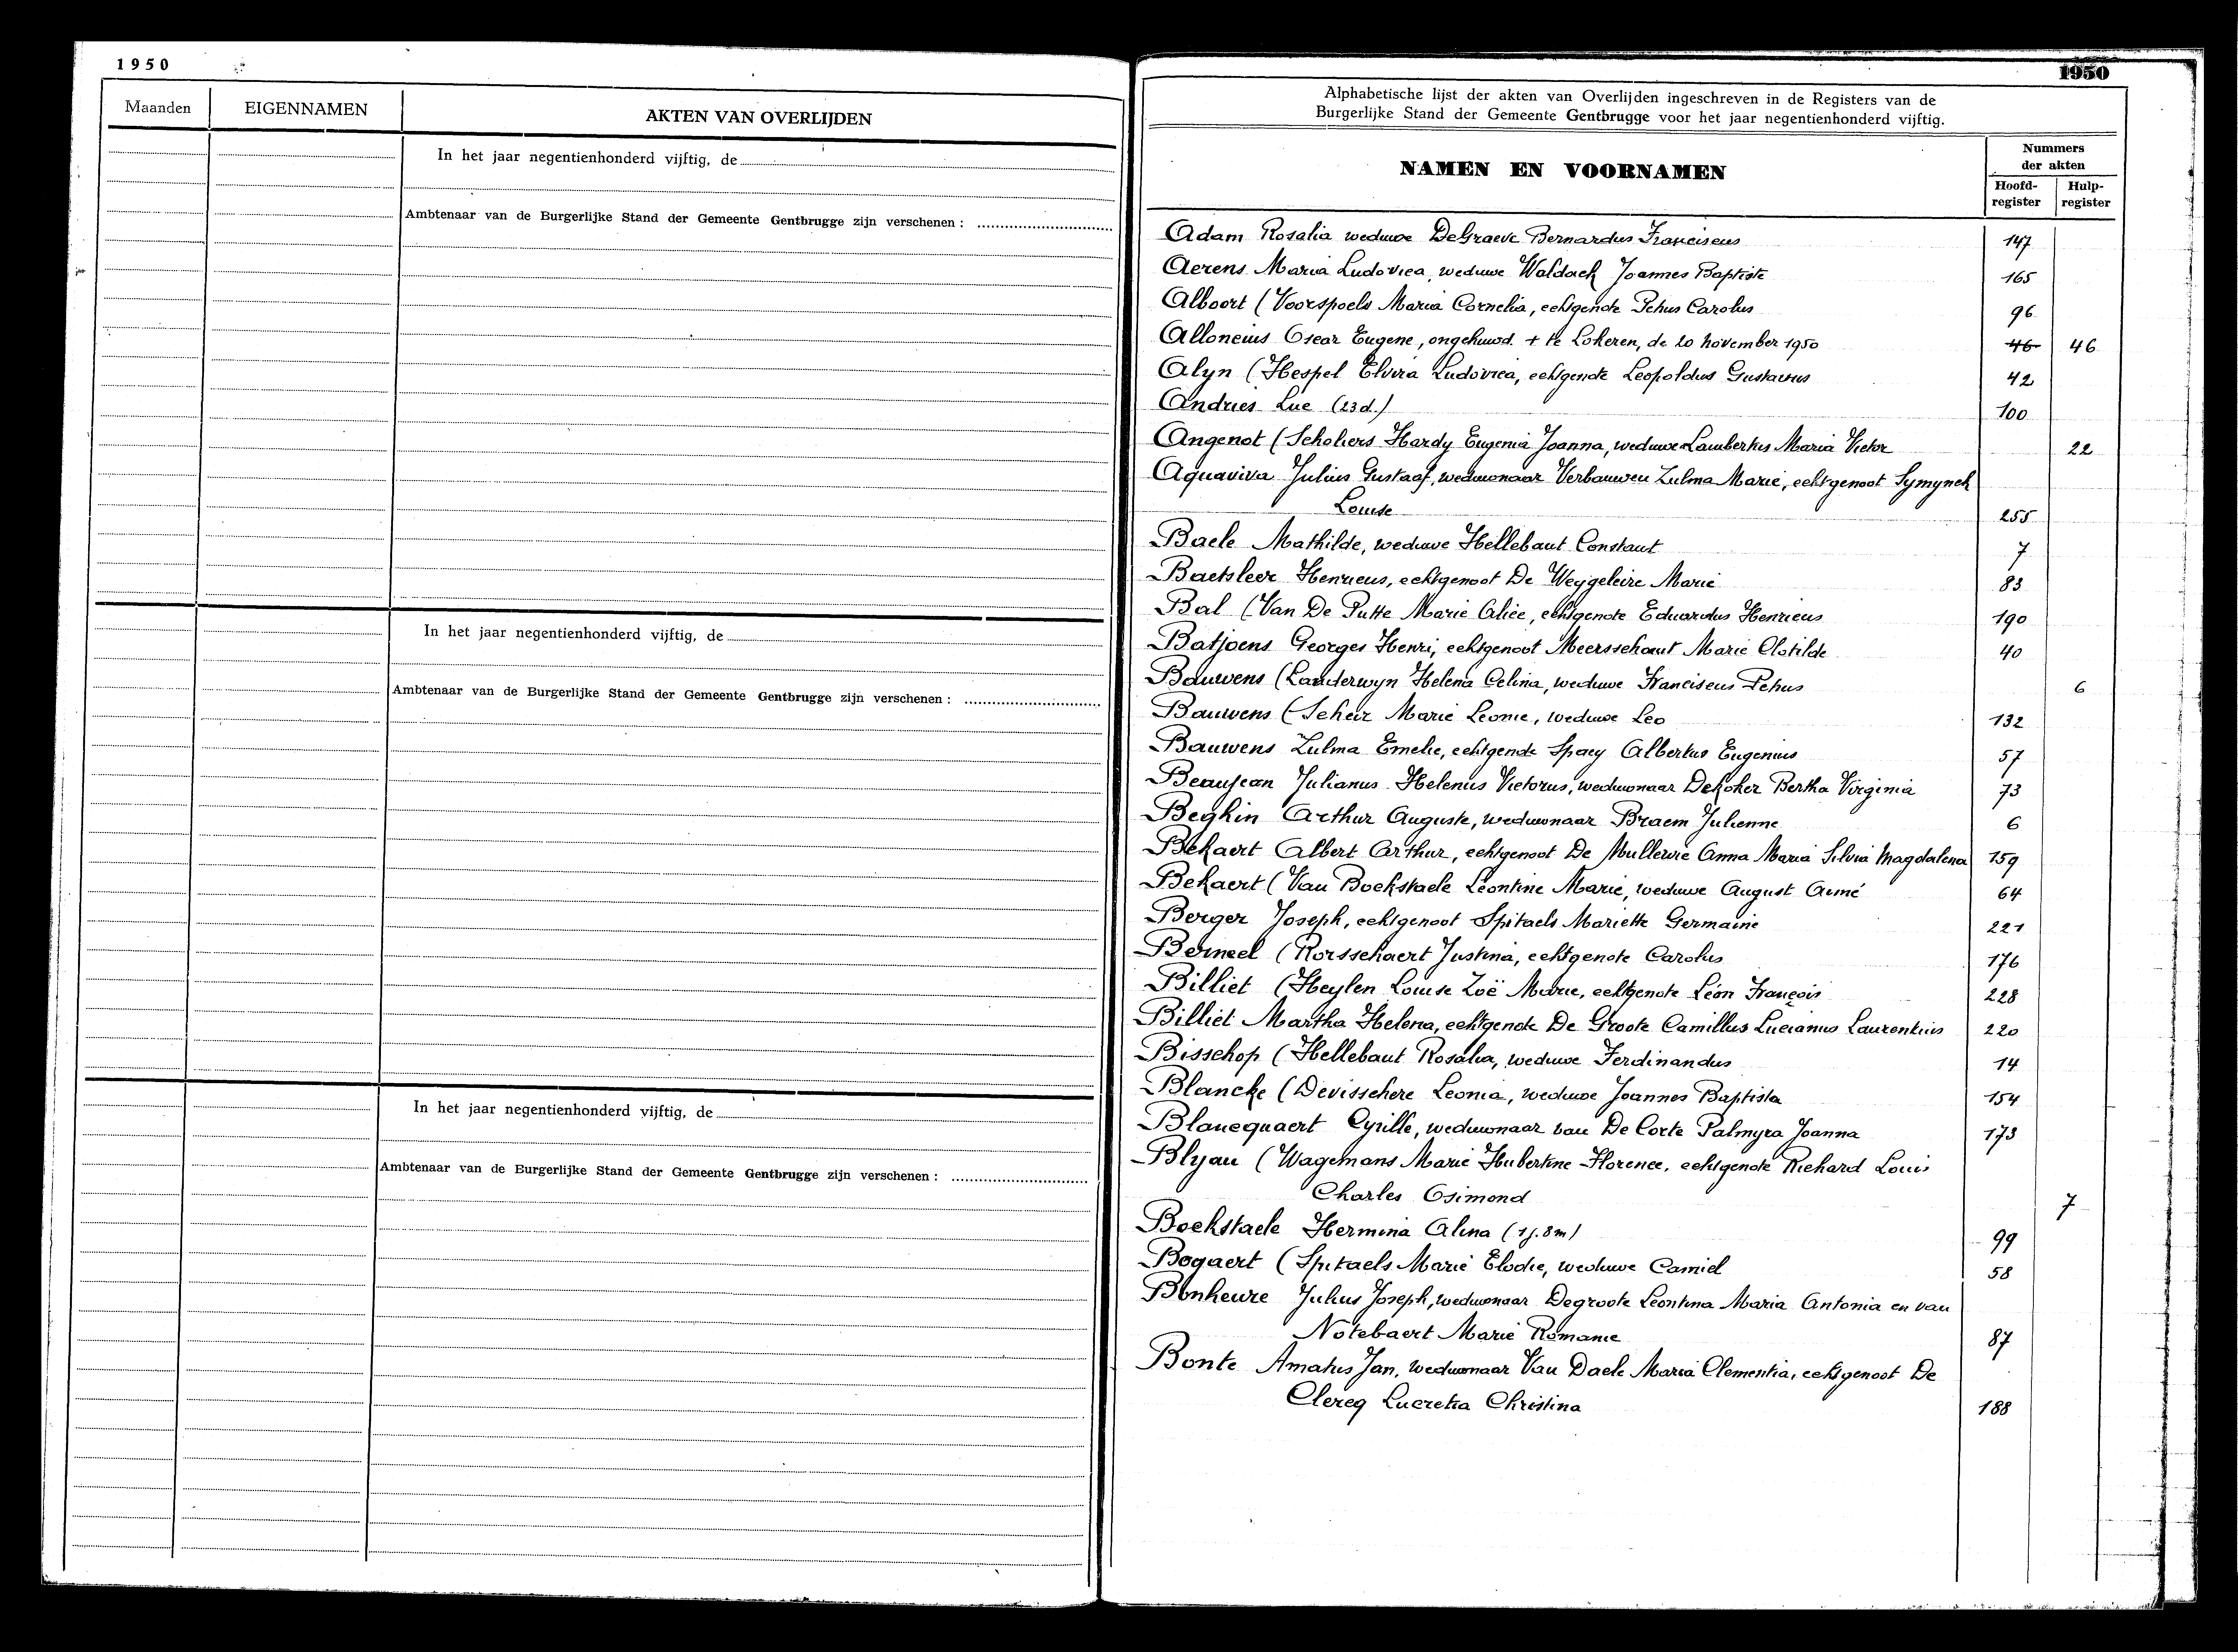 1950
Maanden EIGENNAMEN AKTEN VAN OVERLIJDEN
In het jaar negentienhonderd vijftig, de
Ambtenaar van de Burgerlijke Stand der Gemeente Gentbrugge zijn verschenen :
In het jaar negentienhonderd vijftig, de
Ambtenaar van de Burgerlijke Stand der Gemeente Gentbrugge zijn verschenen :
In het jaar negentienhonderd vijftig, de
Ambtenaar van de Burgerlijke Stand der Gemeente Gentbrugge zijn verschenen :
1950
Alphabetische lijst der akten van Overlijden ingeschreven in de Registers van de
Burgerlijke Stand der Gemeente Gentbrugge voor het jaar negentienhonderd vijftig.
NAMEN EN VOORNAMEN
Nummers
der akten
Hoofd- Hulp-
register register
Adam Rosalia weduwe DeGraeve Bernardus Franciscus 147
Aerens Maria Ludovica, weduwe Waldack Joannes Baptiste 165
Alboort (Voorspoels Maria Cornelia, echtgenote Petrus Carolus 96
Alloncius Oscar Eugene, ongehuwd + te Lokeren, de 20 november 1950 46 46
Alyn (Hespel Elvira Ludovica, echtgenote Leopoldus Gustavus 42
Andries Luc (23 d.) 100
Angenot (Scholiers Hardy Eugenia Joanna, weduwe Lambertus Maria Victor 22
Aquaviva Julius Gustaaf, weduwnaar Verbauwen Zulma Marie, echtgenoot Symynck
Louise 255
Baele Mathilde, weduwe Hellebaut Constant 7
Baetsleer Henricus, echtgenoot De Weygeleire Marie 83
Bal (Van De Putte Marie Alice, echtgenote Eduardus Henricus 190
Batjoens Georges Henri, echtgenoot Meersschaut Marie Clotilde 40
Bauwens (Landerwyn Helena Celina, weduwe Franciscus Petrus 6
Bauwens (Scheir Marie Leonie, weduwe Leo 132
Bauwens Zulma Emelie, echtgenote Spaey Albertus Eugenius 57
Beaujean Julianus Helenus Victorus, weduwnaar DeKoker Bertha Virginia 73
Beghin Arthur Auguste, weduwnaar Braem Julienne 6
Bekaert Albert Arthur, echtgenoot De Mullewie Anna Maria Silvia Magdalena 159
Bekaert (Van Boekstaele Léontine Marie, weduwe August Aimé 64
Berger Joseph, echtgenoot Spitaels Mariette Germaine 221
Berneel (Rorsschaert Justina, echtgenote Carolus 176
Billiet (Heylen Louise Zoë Marie, echtgenote Léon François 228
Billiet Martha Helena, echtgenote De Groote Camillus Lucianus Laurentius 220
Bisschop (Hellebaut Rosalia, weduwe Ferdinandus 14
Blancke (Devisschere Leonia, weduwe Joannes Baptista 154
Blancquaert Cyrille, weduwnaar van De Corte Palmyra Joanna 173
Blyau (Wagemans Marie Hubertine Florence, echtgenote Richard Louis
Charles Osimond 7
Boekstaele Hermina Alina (1 j. 8 m) 99
Bogaert (Spitaels Marie Elodie, weduwe Camiel 58
Bonheure Julius Joseph, weduwnaar Degroote Leontina Maria Antonia en van
Notebaert Marie Romanie 87
Bonte Amatus Jan, weduwnaar Van Daele Maria Clementia, echtgenoot De
Clercq Lucretia Christina 188